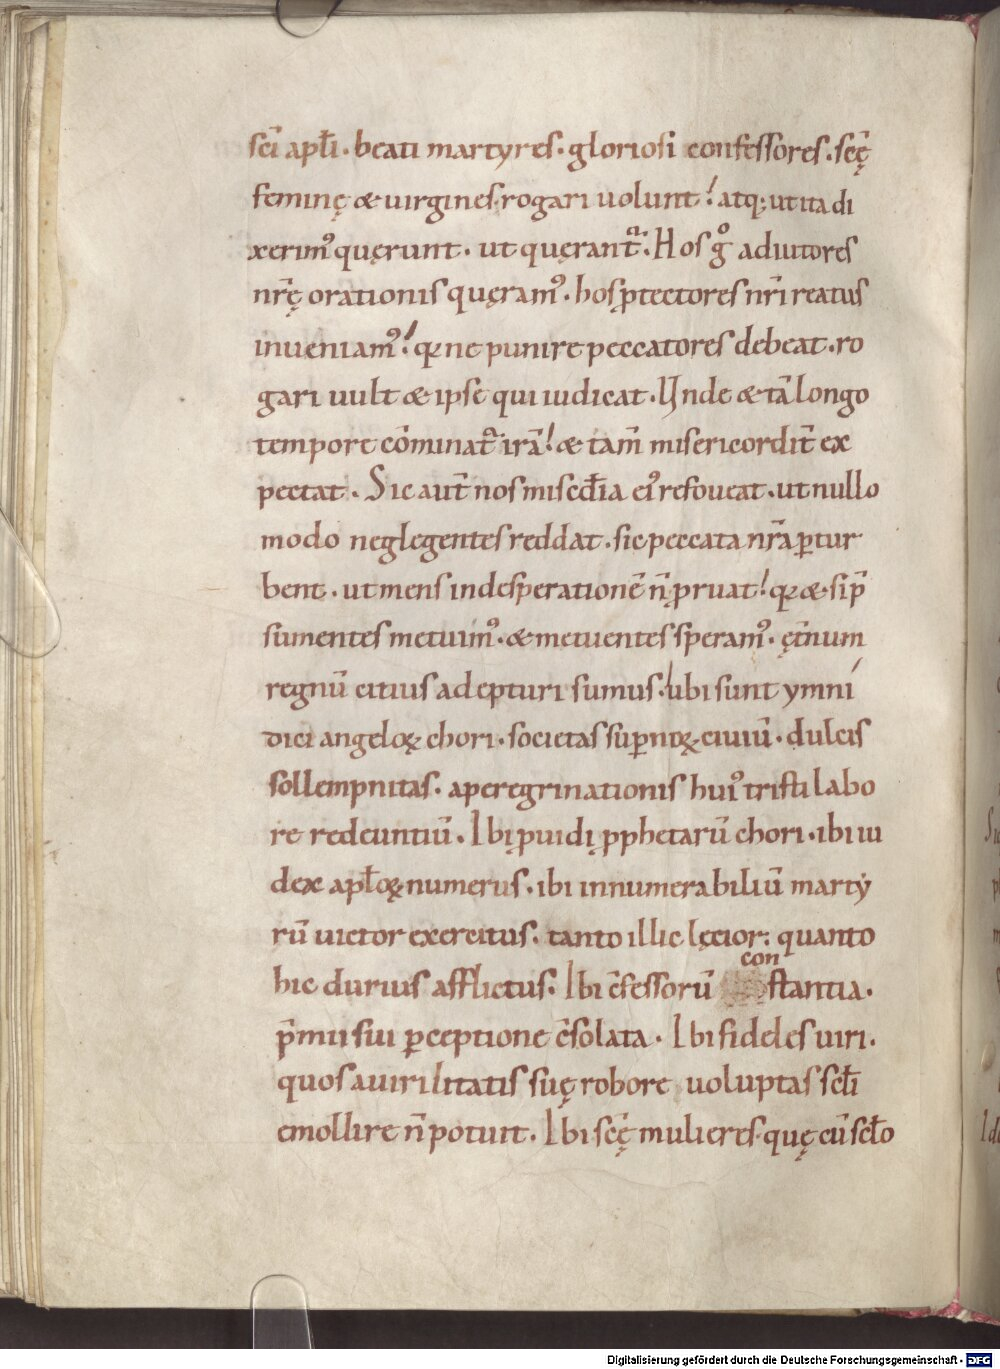 sc̄i apłi · beati martyres · gloriosi confessores · sc̄ę
feminę & uirgines · rogari uolunt ! atq; ut ita di
xerim᾽ quęrunt · ut quęrant᷑ · Hos gͦ adiutores
nr̄ę orationis quęram᾽ · hos ꝓtectores nr̄i reatus
inueniam᾽ ! qꝛ ne punire peccatores debeat · ro
gari uult & ipse qui iudicat · Unde & tā longo
tempore cōminat᷑ irā ! & tam̄ misericordit̄ ex
pectat · Sic aut̄ nos misc̄dia ei᾽ refoueat · ut nullo
modo neglegentes reddat · sic peccata nr̄a ꝑtur
bent · ut mens in desperationē n̄ ꝓruat ! qꝛ & si p̄
sumentes metuim᾽ · & metuentes speram᾽ · ęt̄num
regnū citius adepturi sumus · ubi sunt ymni
dici angeloꝝ chori · societas suꝑnoꝝ ciuiū · dulcis
sollempnitas · a peregrinationis hui᾽ tristi labo
re redeuntiū · Ibi ꝓuidi ꝓphetarū chori · ibi iu
dex apłoꝝ numerus · ibi innumerabiliū marty
rū uictor exercitus · tanto illic lęcior : quanto
con
hic durius afflictus · Ibi c̄fessorū stantia ·
p̄mii sui ꝑceptione c̄solata · Ibi fideles uiri ·
quos a uirilitatis suę robore uoluptas scłi
emollire n̄ potuit · Ibi sc̄ę mulieres · quę cū scło
Digitalisierung gefördert durch die Deutsche Forschungsgemeinschaft - DFG